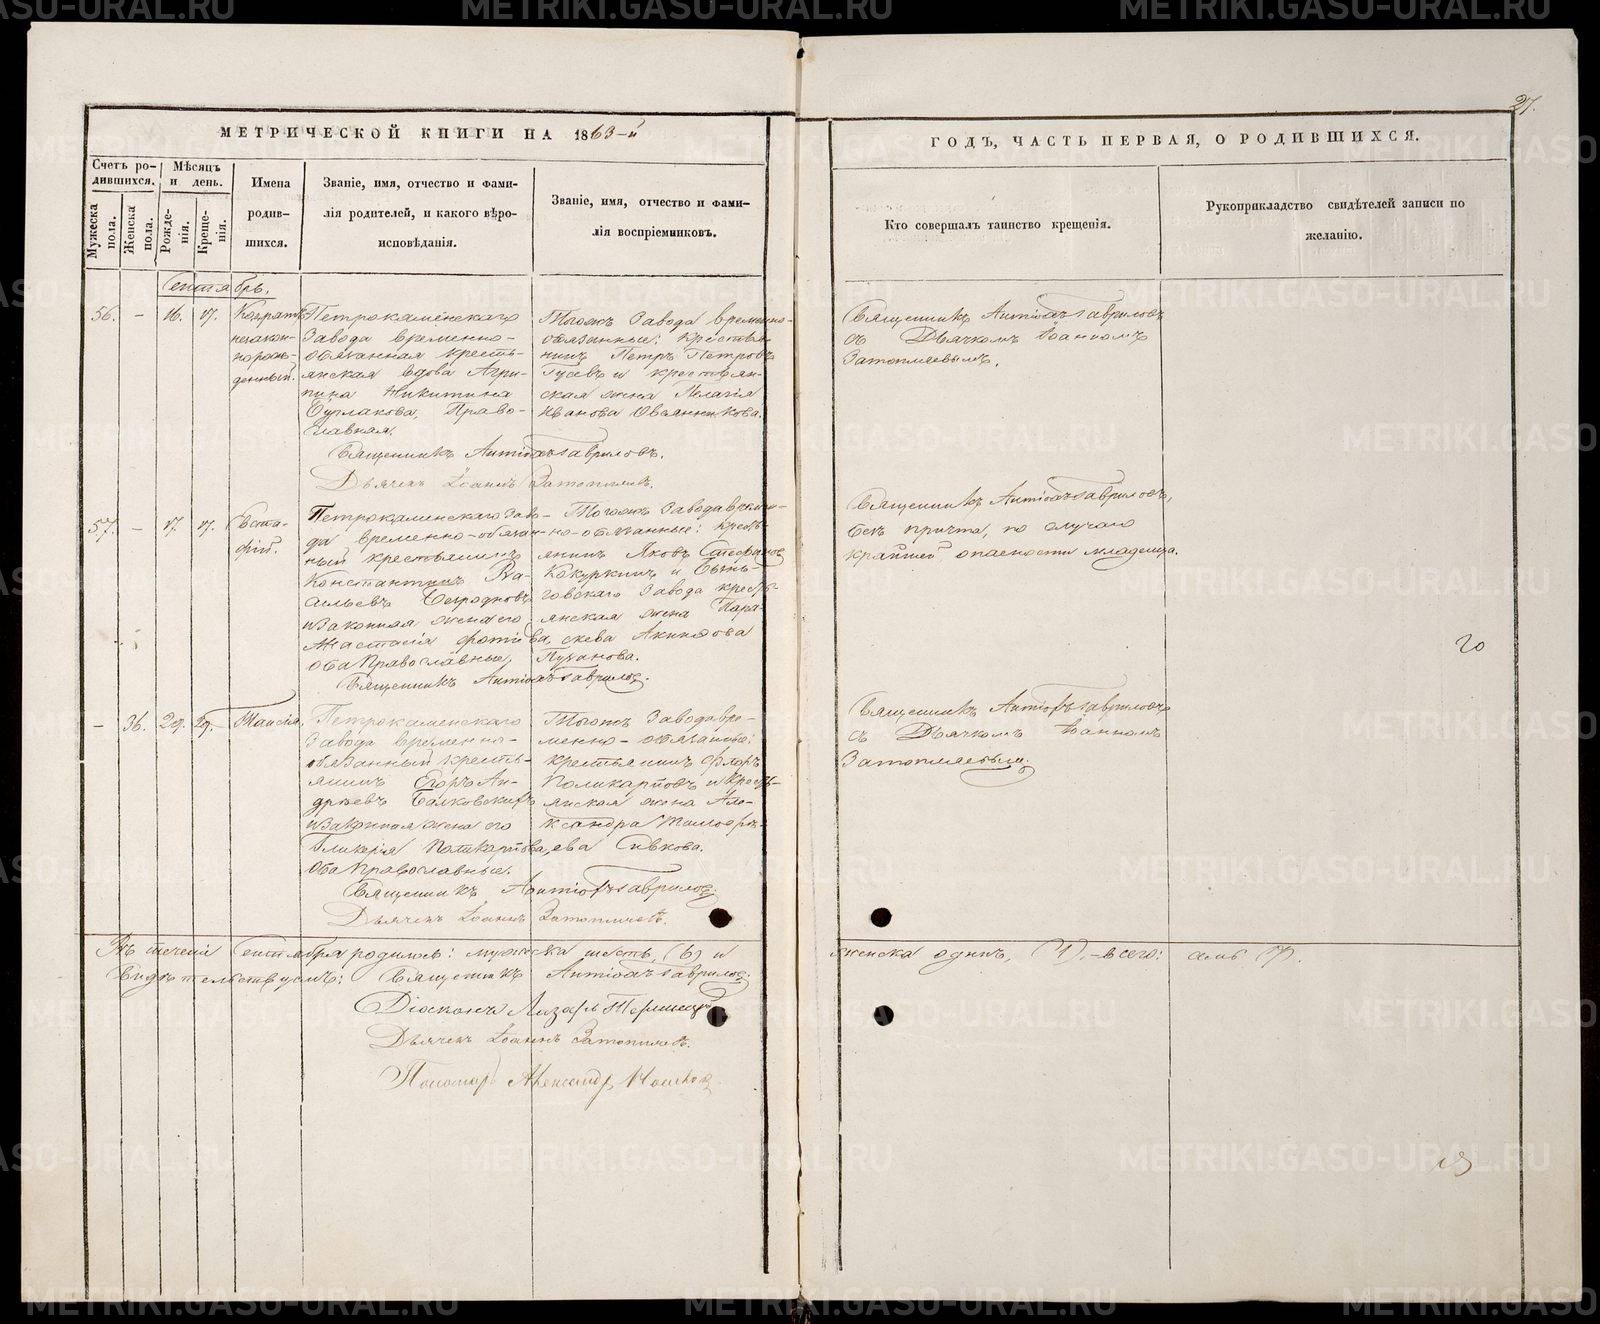 27.
МЕТРИЧЕСКОЙ КНИГИ НА 1863-й
ГОДЪ, ЧАСТЬ ПЕРВАЯ, О РОДИВШИХСЯ.
Счетъ ро-
дившихся.
Мужеска
пола.
Женска
пола.
Мѣсяцъ
и день.
Рожде-
нія.
Креще-
нія.
Имена
родив-
шихся.
Званіе, имя, отчество и фами-
лія родителей, и какого вѣро-
исповѣданія.
Званіе, имя, отчество и фами-
лія воспріемниковъ.
Кто совершалъ таинство крещенія.
Рукоприкладство свидѣтелей записи по
желанію.
Сентябрь.
56. - 16. 17.
Кодратъ
незакон-
норож-
денный.
Петрокаменскаго
Завода временно-
обязанная кресть-
янская вдова Агри-
пина Никитина
Православная.
Священникъ Антіохъ Гавриловъ.
Дьячекъ Іоаннъ Затопляевъ.
Тогожъ Завода временно-
обязанные: крестья-
нинъ Петръ Петровъ
Гусевъ и крестьян-
ская жена Пелагія
Иванова Овчинникова.
Священникъ Антіохъ Гавриловъ
съ Дьячкомъ Іоанномъ
Затопляевымъ.
57. - 17. 17.
Евста-
фій.
Петрокаменскаго Заво-
да временно-обязан-
ный крестьянинъ
Константинъ Ва-
сильевъ
и законная жена его
Анастасія Фотіева,
оба Православные.
Священникъ Антіохъ Гавриловъ.
Тогожъ Завода времен-
но-обязанные: кресть-
янинъ Яковъ Стефановъ
Кокуркинъ и Быньговскаго Завода кресть-
янская жена Пара-
скева Акинфова
Пузанова.
Священникъ Антіохъ Гавриловъ,
безъ причта, по случаю
крайней опасности младенца.
20
- 36. 29. 29.
Таисія.
Петрокаменскаго
Завода временно-
обязанный кресть-
янинъ Егоръ Ан-
дреевъ Балковскихъ
и законная жена его
Гликерія Поликарпова,
оба Православные.
Священникъ Антіохъ Гавриловъ.
Дьячекъ Іоаннъ Затопляевъ.
Тогожъ Завода вре-
менно-обязанные:
крестьянинъ Флоръ
Поликарповъ и кресть-
янская жена Але-
ксандра Тимофе-
ева Сивкова.
Священникъ Антіохъ Гавриловъ
съ Дьячкомъ Іоанномъ
Затопляевымъ.
Въ теченіи Сентября родилось: мужеска шесть, (6) и женска одинъ, (1), - всего: семь (7).
Свидѣтельствуемъ: Священникъ Антіохъ Гавриловъ.
Діаконъ Лазарь
Дьячекъ Іоаннъ Затопляевъ.
Пономарь Александръ
METRIKI.GASO-URAL.RU